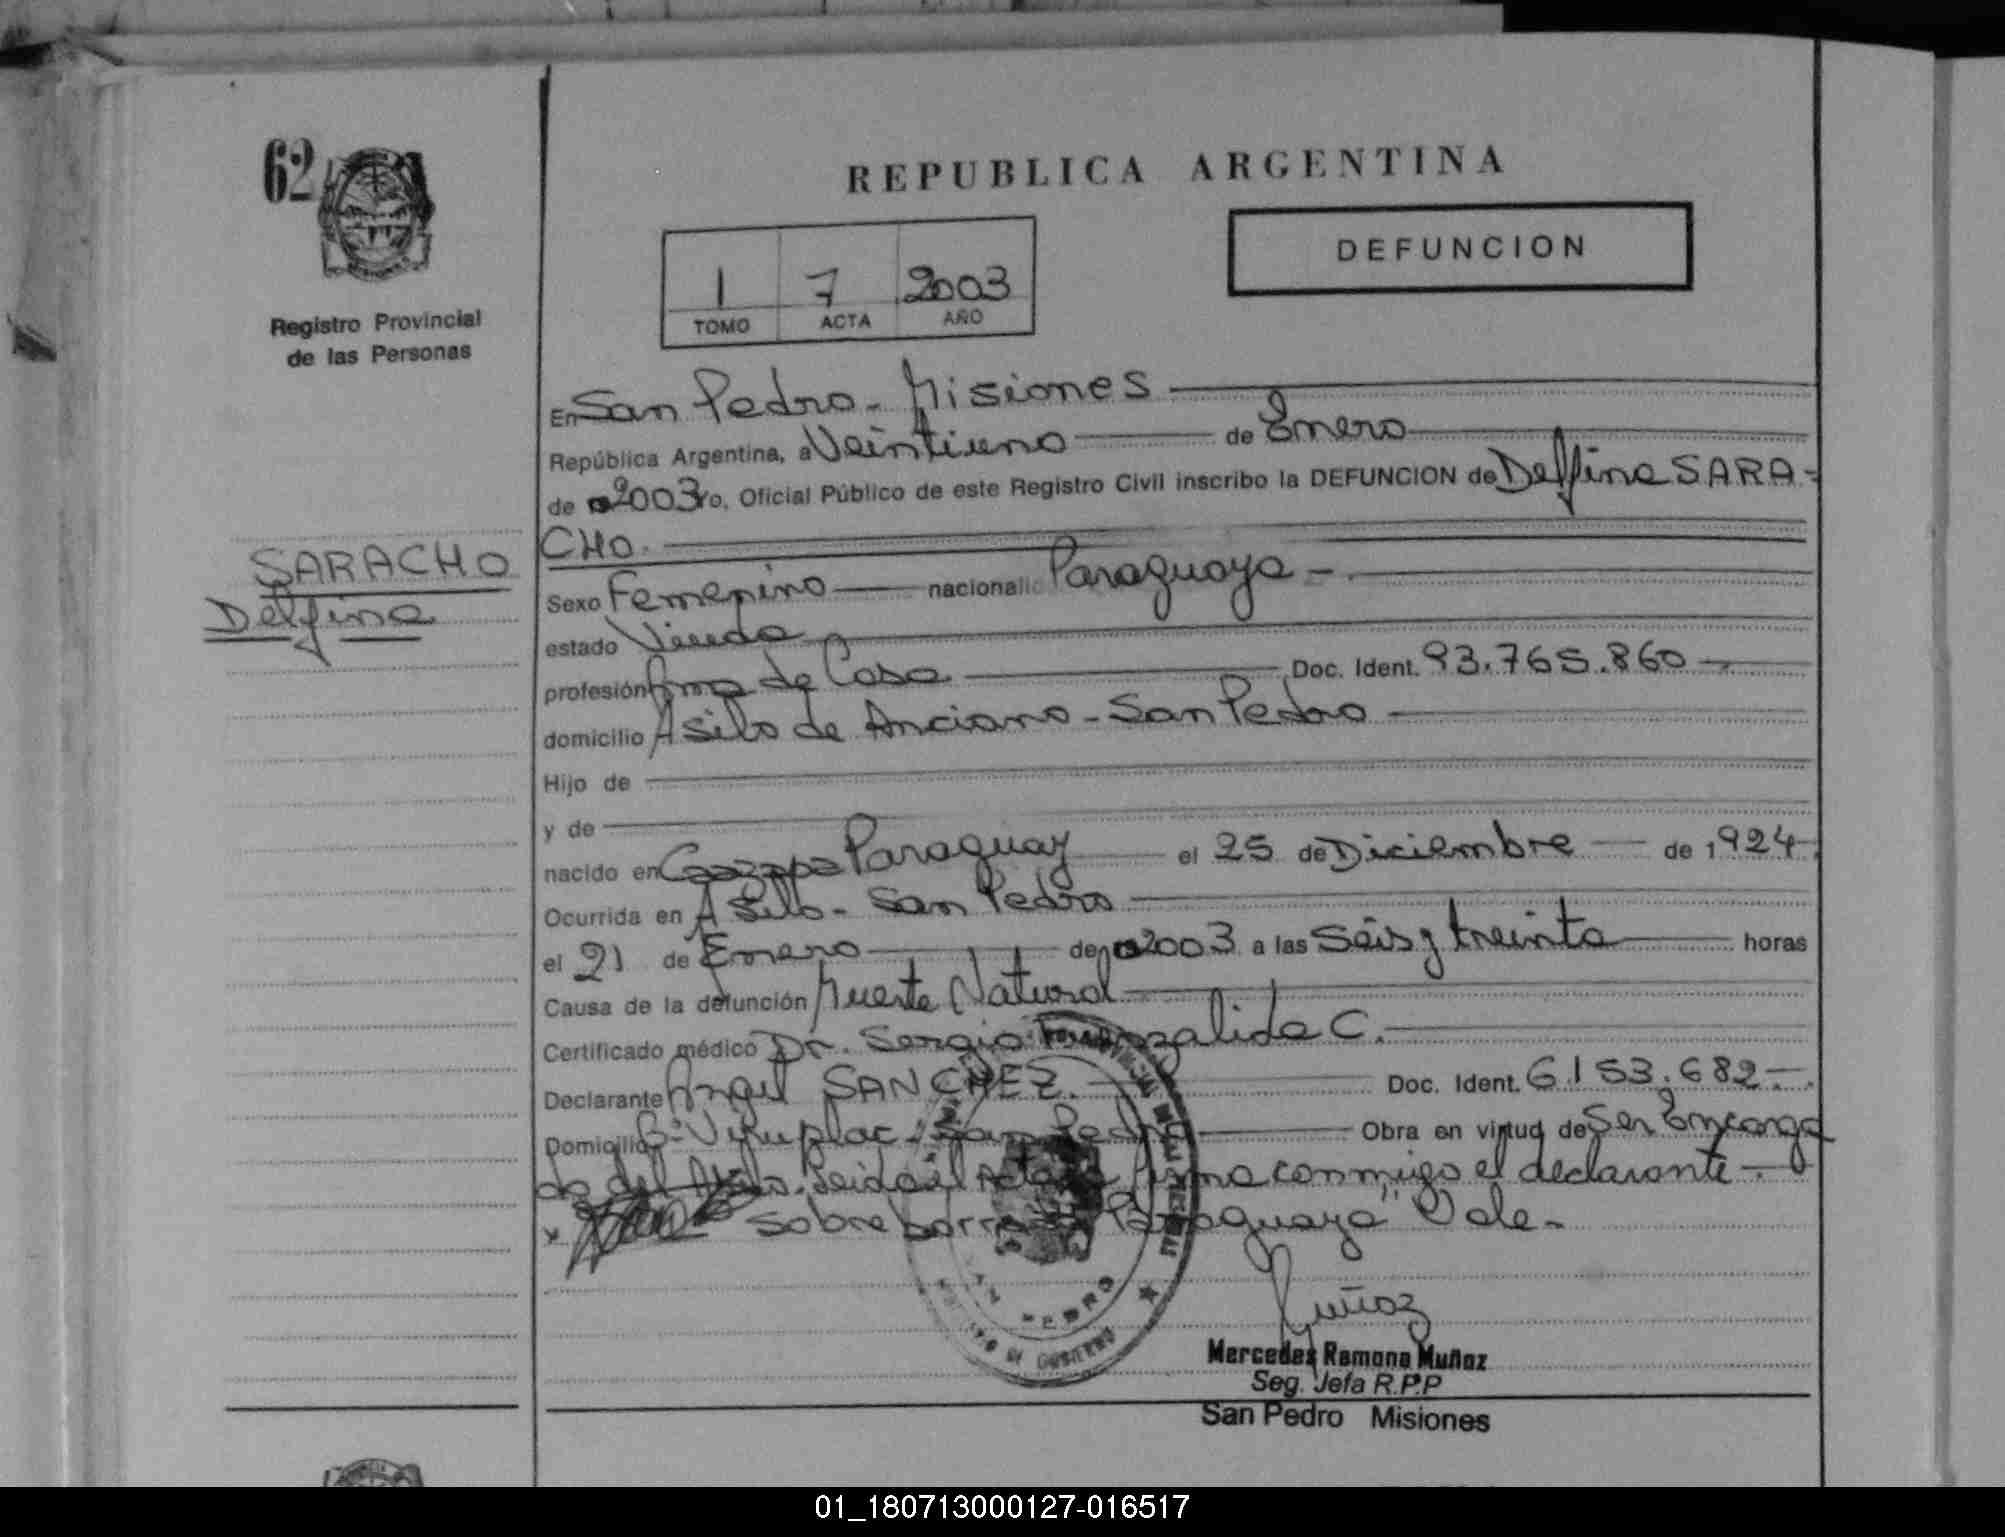 62
REPUBLICA ARGENTINA
DEFUNCION
1 7 2003
TOMO ACTA AÑO
Registro Provincial
de las Personas
En San Pedro - Misiones
República Argentina, a Veintiuno de Enero
de 2003 Yo, Oficial Público de este Registro Civil inscribo la DEFUNCION de Delfina SARA-
CHO.
SARACHO
Delfina
Sexo Femenino nacionali Paraguaya -.
estado Viuda
profesión Ama de Casa Doc. Ident. 93.765.860
domicilio Asilo de Anciano - San Pedro
Hijo de
y de
nacido en Caazapa Paraguay el 25 de Diciembre de 1924.
Ocurrida en Asilo - San Pedro
el 21 de Enero de 2003 a las Seis y treinta horas
Causa de la defunción Muerte Natural
Certificado médico Dr. Sergio C.
Declarante Angel SANCHEZ. Doc. Ident. 6.153.682-.
Domicilio B° San Pedro Obra en virtud de Ser Encarga
do del Asilo. Leida el Acta firma conmigo el declarante -.
Sobre borrado "Paraguaya" Vale -
SAN PEDRO
MINISTERIO DE GOBIERNO
Muñoz
Mercedes Ramona Muñoz
Seg. Jefa R.P.P
San Pedro Misiones
01_180713000127-016517